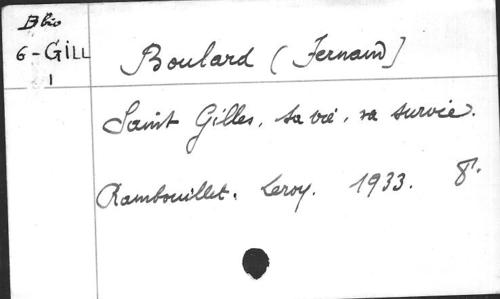 D bio
6-GILL
1
Boulard (Fernand)
Saint Gilles, sa vie, sa survie.
Rambouillet. Leroy. 1933. 8°.